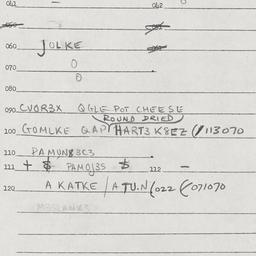 061 — 062
060 JOLKE
070 0
0
080
090 CVOR3X QGLE POT CHEESE
ROUND DRIED
100 GOMLKE QAP/HART3 K8EZ (/113070
110 PAMUN83C3
111 + $ PAMOJ35 $ 112 —
120 A KATKE / A TU.N (022 (/071070